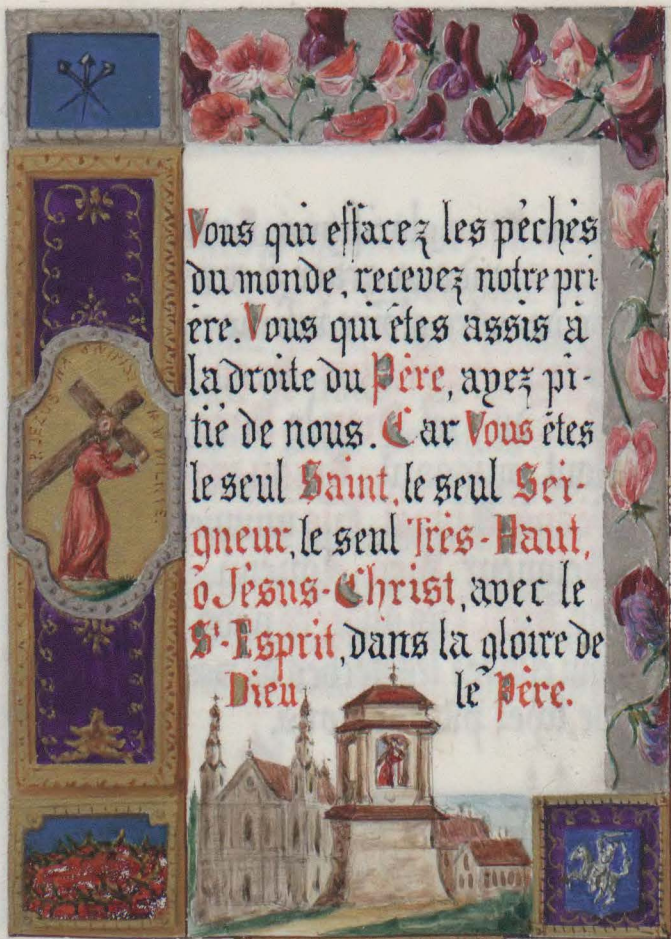 Vous qui effacez les péchés
du monde, recevez notre pri-
ère. Vous qui êtes assis à
la droite du Père, ayez pi-
tié de nous. Car Vous êtes
le seul Saint, le seul Sei-
gneur, le seul Très-Haut,
ô Jésus-Christ, avec le
St-Esprit, dans la gloire de
Dieu le Père.